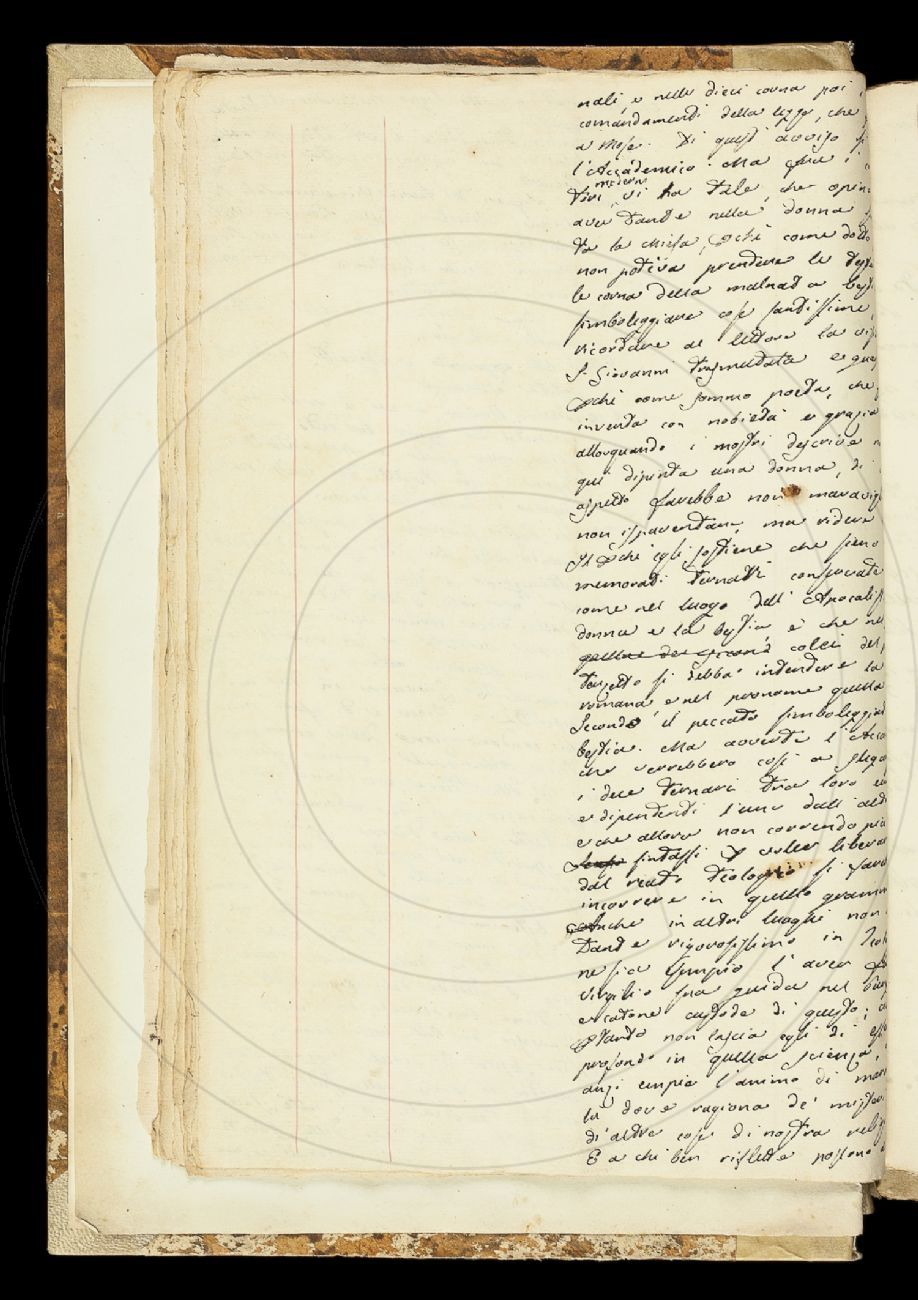 nali, e nelle dieci corna poi
comandamenti della legge, che
a Mosè. Di questi avviso
l'Accademico. Ma fra i
moderni
tivi, vi ha tale, che opin
aver Dante nella donna
ta la Chiesa, pchè come dotto
non poteva prendere le teste
le corna della malnata besti
simboleggiare cose santissime,
ricordare al lettore la visi
S. Giovanni trasmutata e gua
pchè come sommo poeta, che
inventa con nobiltà e grazia
allorquando i mostri descrive
qui dipinta una donna, di
aspetto farebbe non maravig
non ispaventare, ma ridere
Il pchè egli sostiene che sieno
memorati ternarii
come nel luogo dell'Apocalis
donna e la bestia è che nel
colei del
terzetto si debba intendere la
romana e nel pronome quella
secondo il peccato simboleggiat
bestia. Ma avverte l'Acca
che verrebbero così a slega
i due ternari tra loro
e dipendenti l'uno dall'alt
e che allora non correndo più
sintassi p voler liberar
dal reato teologico si fare
incorrere in quello gramm
Anche in altri luoghi non
Dante rigorosissimo in Teol
ne sia esempio l'aver
Virgilio sua guida nel Pur
e Catone custode di questo;
ptanto non lascia egli di ess
profondo in quella scienza,
anzi empie l'animo di mar
là dove ragiona de' misteri
di altre cose di nostra relig
E a chi ben riflette possono